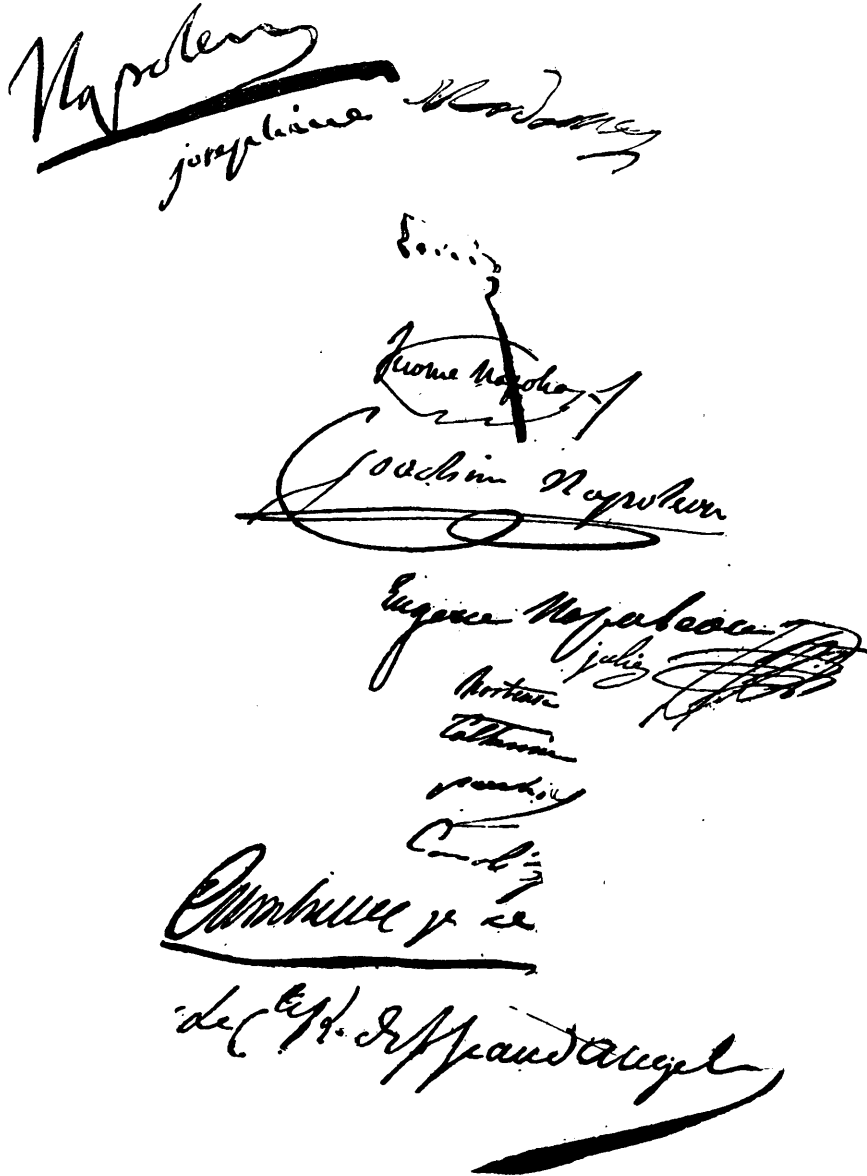 Napoleon
josephine Madame
Louis
Jerome Napoleon
Joachim Napoleon
Eugene Napoleon
julie
Hortense
Catherine
pauline
Caroline
Le Cte R. de St Jean d'Angely